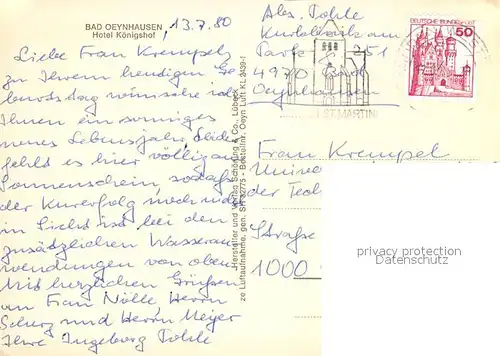 BAD OEYNHAUSEN
Hotel Königshof
13.7.80
Liebe Frau Krempel,
zu Ihrem heutigen Ge-
burtstag wünsche ich
Ihnen ein sonniges
neues Lebensjahr. Leider
fehlt es hier völlig an
Sonnenschein, sodaß
der Kurerfolg noch nicht
in Sicht ist bei den
zusätzlichen Wasseran-
wendungen von oben.
Mit herzlichen Grüßen
an Frau Nölle Herrn
Scherz und Herrn Meyer
Ihre Ingeborg Pohle
Hersteller und Verlag Schöning & Co., Lübeck
ze Luftaufnahme, gen. SH 82775 - Bestellnr. Oeyn Luft KL 2439-1
Abs. Pohle
Kurklinik am
Park 251
4970 Bad
Oeynhausen
DEUTSCHE BUNDESPOST
50
ST. MARTINI
Frau Krempel
der Tech
Straße
1000
privacy protection
Datenschutz